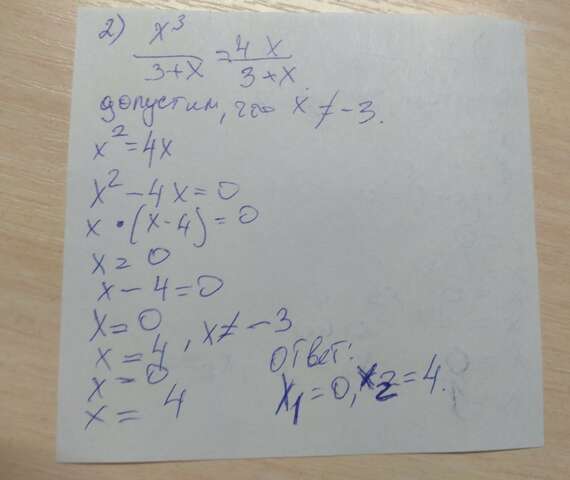 2) x³/3+x = 4x/3+x.
допустим, что x ≠ -3.
x² = 4x
x² - 4x = 0
x • (x-4) = 0
x = 0
x - 4 = 0
x = 0
x = 4, x ≠ -3
x = 0
x = 4
ответ:
x₁ = 0, x₂ = 4.